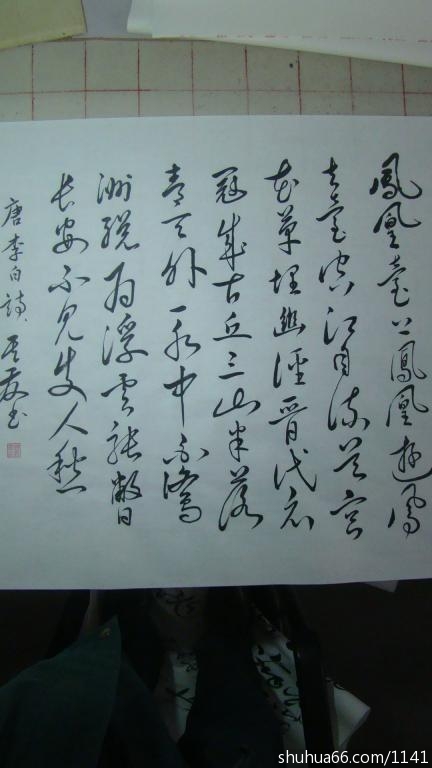 鳳凰臺上鳳凰遊鳳
去臺空江自流吴宫
花草埋幽徑晋代衣
冠成古丘三山半落
青天外一水中白鷺
洲總為浮雲能蔽日
長安不見使人愁
唐李白詩 书
shuhua66.com/1141